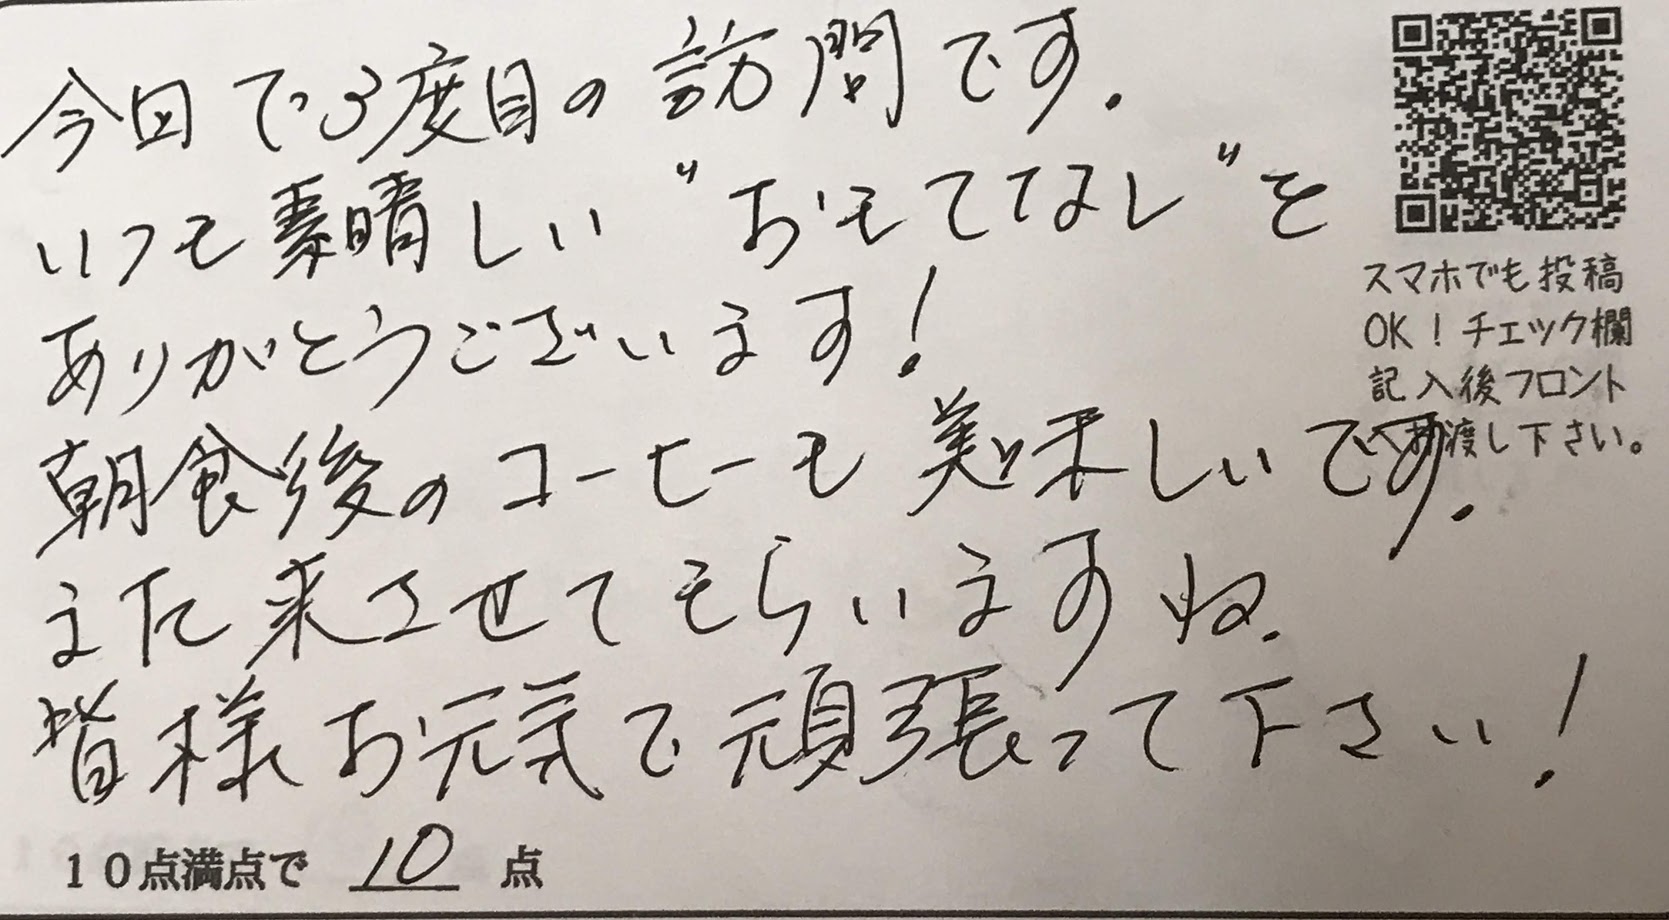 今回で3度目の訪問です.
いつも素晴しい"おもてなし"を
ありがとうございます!
朝食後のコーヒーも美味しいです.
また来させてもらいますね.
皆様お元気で頑張って下さい!
10点満点で 10 点
スマホでも投稿
OK!チェック欄
記入後フロント
へお渡し下さい。